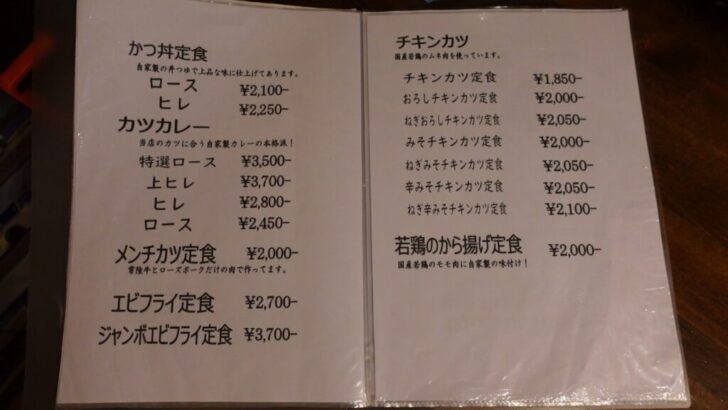 かつ丼定食
自家製の丼つゆで上品な味に仕上げてあります。
ロース ¥2,100-
ヒレ ¥2,250-
カツカレー
当店のカツに合う自家製カレーの本格派！
特選ロース ¥3,500-
上ヒレ ¥3,700-
ヒレ ¥2,800-
ロース ¥2,450-
メンチカツ定食 ¥2,000-
常陸牛とローズポークだけの肉で作ってます。
エビフライ定食 ¥2,700-
ジャンボエビフライ定食 ¥3,700-
チキンカツ
国産若鶏のムネ肉を使っています。
チキンカツ定食 ¥1,850-
おろしチキンカツ定食 ¥2,000-
ねぎおろしチキンカツ定食 ¥2,050-
みそチキンカツ定食 ¥2,000-
ねぎみそチキンカツ定食 ¥2,050-
辛みそチキンカツ定食 ¥2,050-
ねぎ辛みそチキンカツ定食 ¥2,100-
若鶏のから揚げ定食 ¥2,000-
国産若鶏のモモ肉に自家製の味付け！